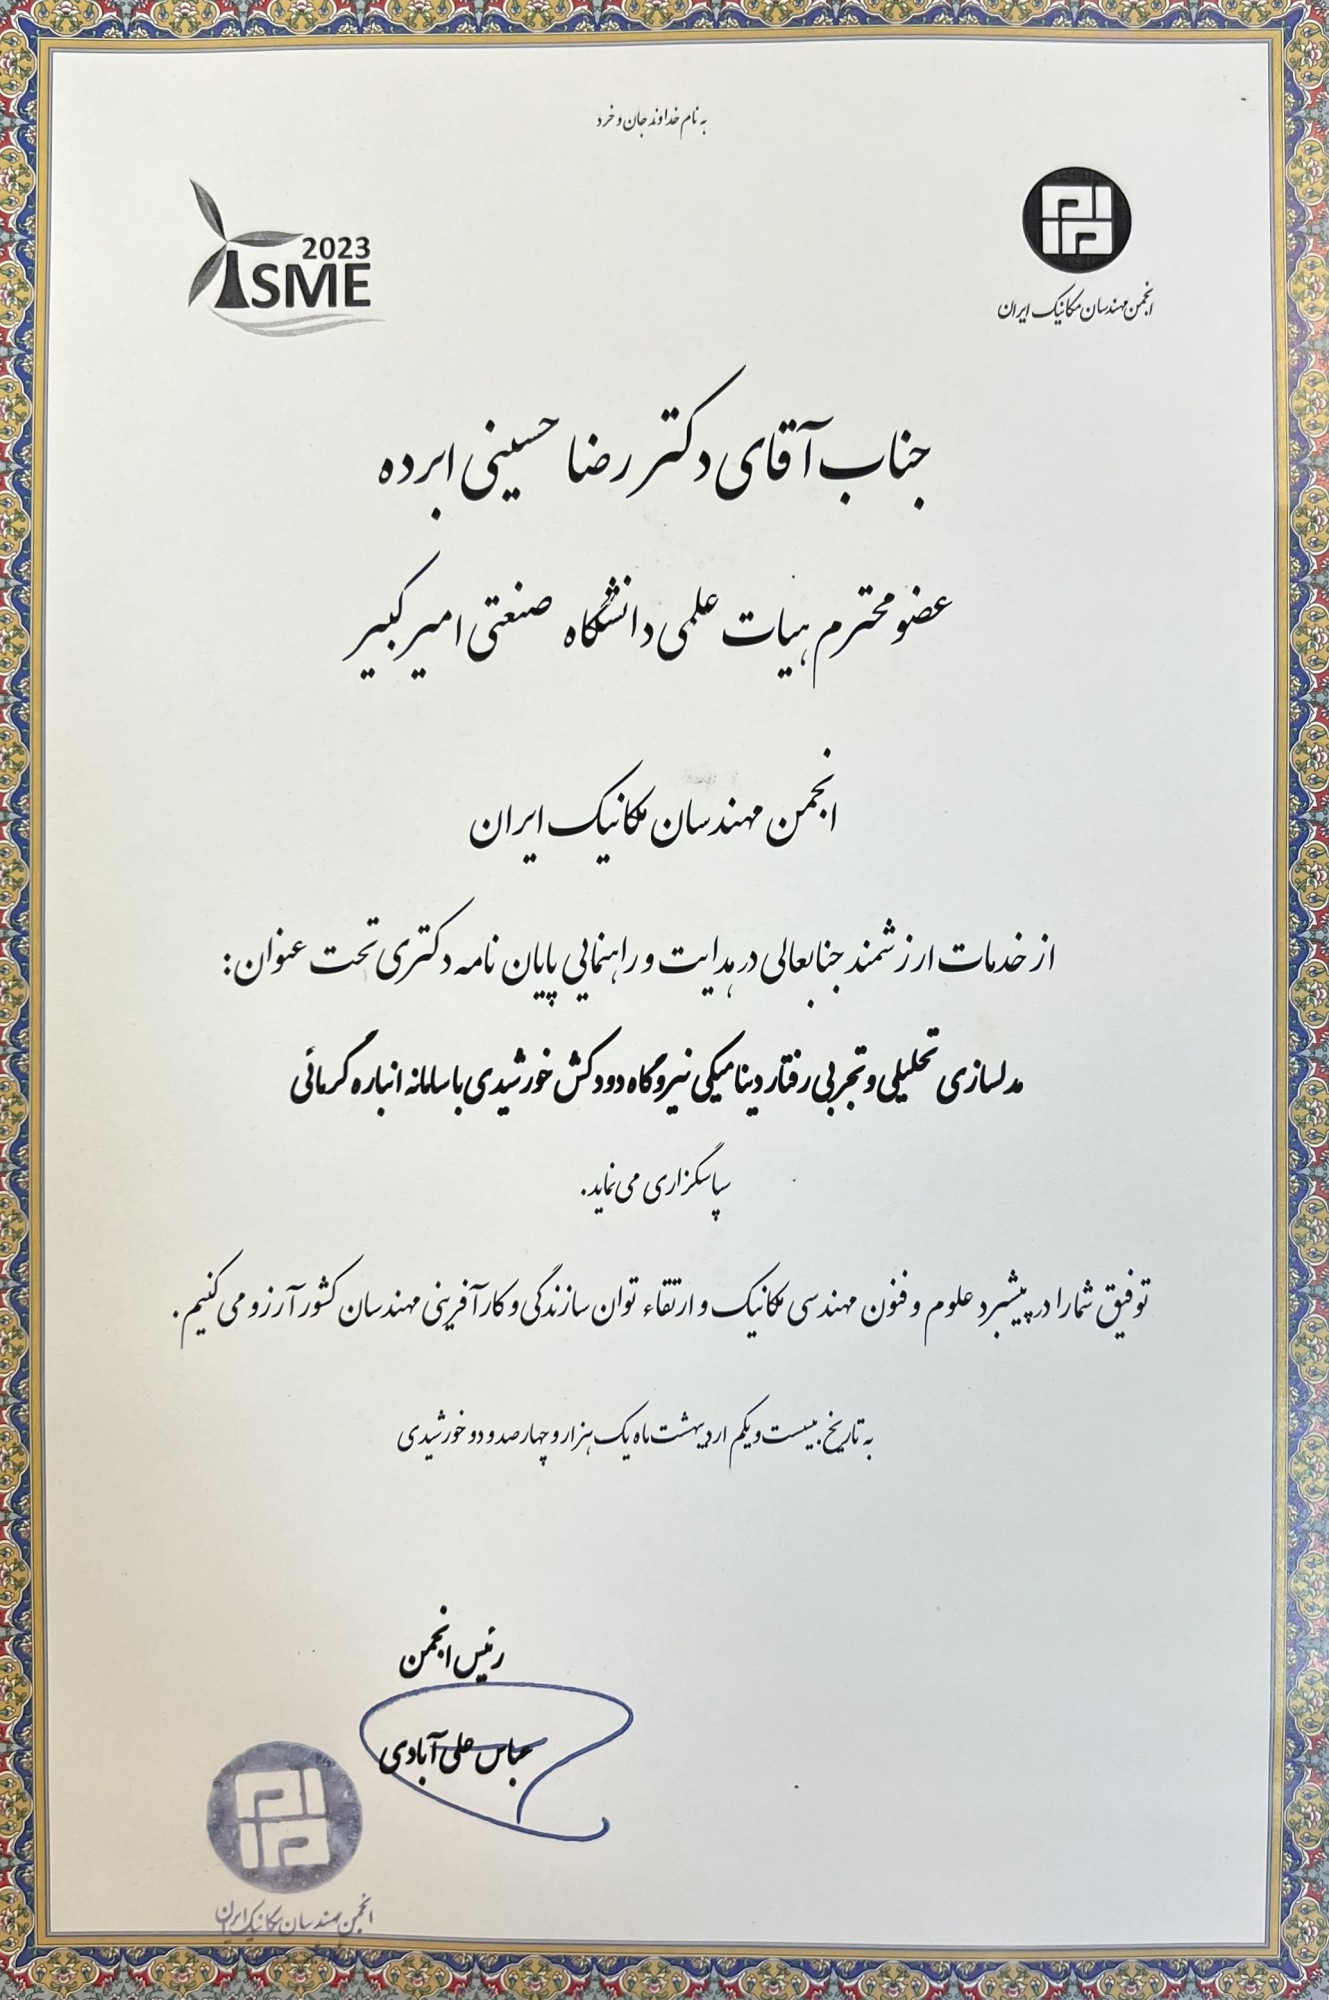 به نام خداوند جان و خرد
2023
ISME
انجمن مهندسان مکانیک ایران
جناب آقای دکتر رضا حسینی ابرده
عضو محترم هیات علمی دانشگاه صنعتی امیرکبیر
انجمن مهندسان مکانیک ایران
از خدمات ارزشمند جنابعالی در هدایت و راهنمایی پایان نامه دکتری تحت عنوان:
مدلسازی تحلیلی و تجربی رفتار دینامیکی نیروگاه دودکش خورشیدی با سامانه انباره گرمائی
سپاسگزاری می نماید.
توفیق شما را در پیشبرد علوم و فنون مهندسی مکانیک و ارتقاء توان سازندگی و کارآفرینی مهندسان کشور آرزو می کنیم.
به تاریخ بیست و یکم اردیبهشت ماه یک هزار و چهارصد و دو خورشیدی
رئیس انجمن
عباس علی آبادی
انجمن مهندسان مکانیک ایران